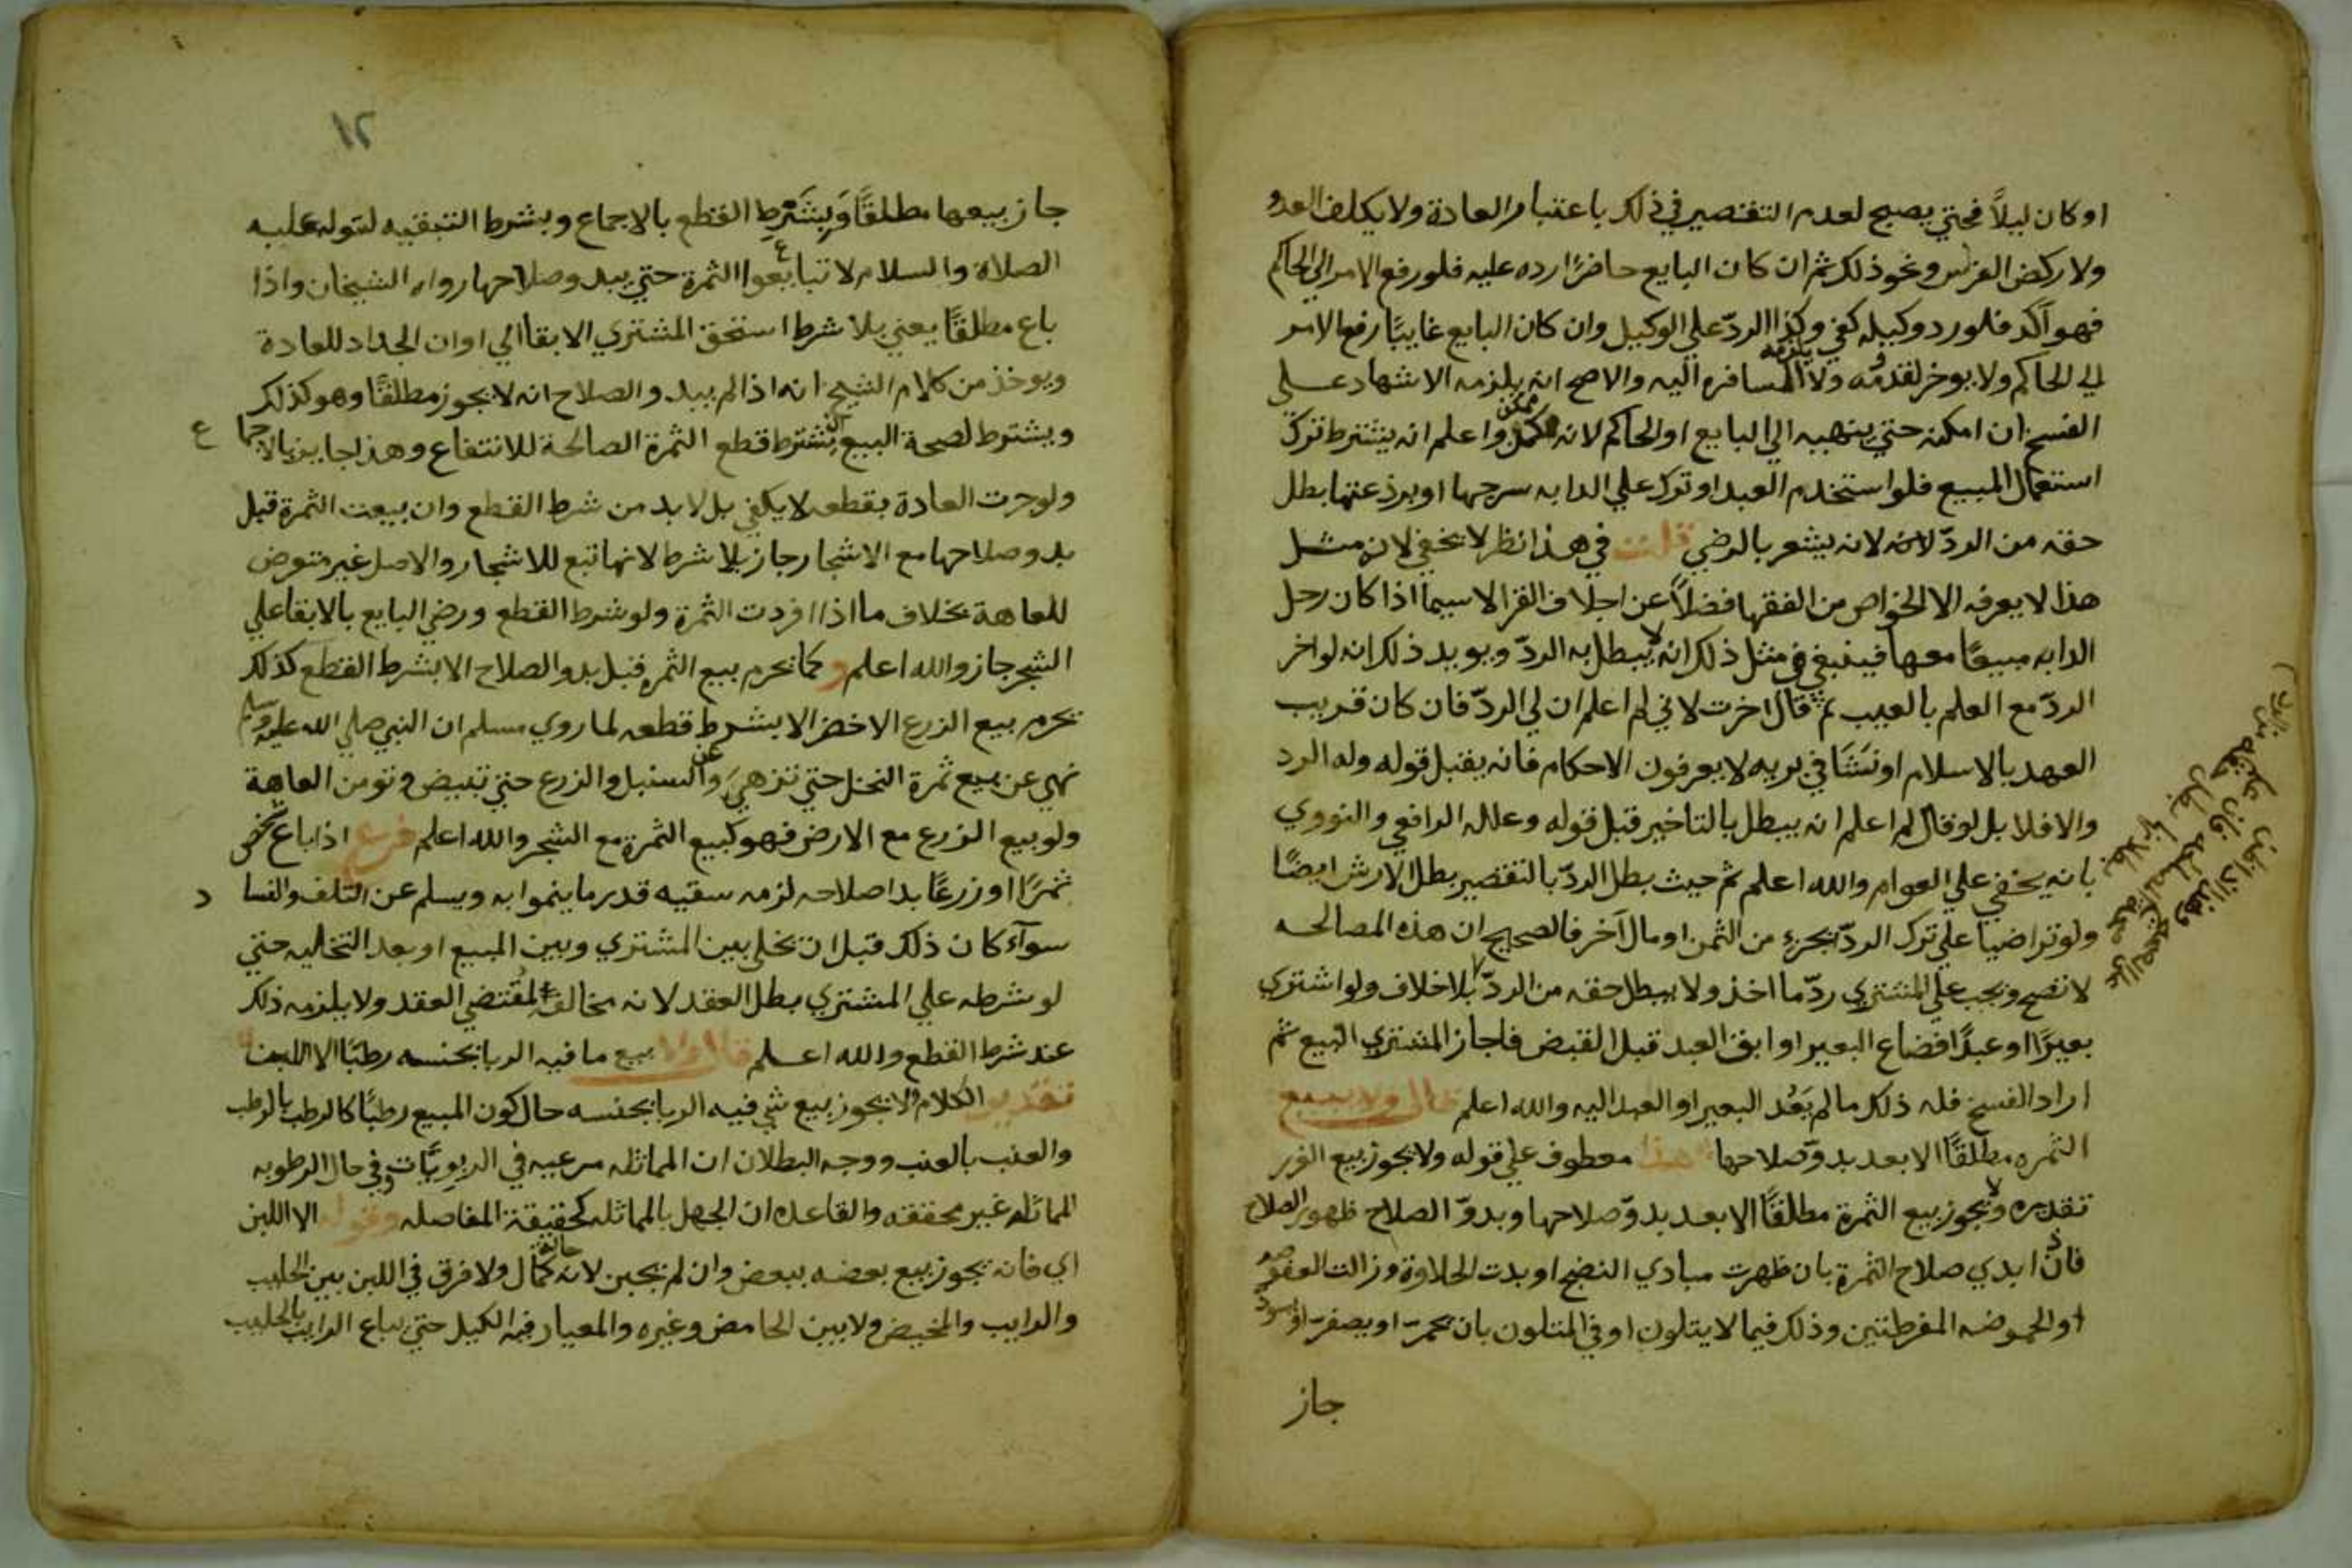 او كان ليلاً فحتي يصبح لعدم التقصير في ذلك باعتبار العادة ولا يكلف العدو
ولا ركض الفرس ونحو ذلك ثم ان كان البايع حاضرًا رده عليه فلو رفع الامر الي الحاكم
فهو آكد فلو رد وكيله كفي وكذا الردّ علي الوكيل وان كان البايع غايبًا رفع الامر
الي الحاكم ولا يوخر لقدومه ولا المسافرة اليه والاصح انه يلزمه الاشهاد علي
الفسخ ان امكنه حتي ينهيه الي البايع او الحاكم لانه ممكن واعلم انه يشترط ترك
استعمال المبيع فلو استخدم العبد او ترك علي الدابه سرجها او برذعتها بطل
حقه من الردّ لانه يشعر بالرضي قلت في هذا نظر لا يخفي لان مثل
هذا لا يعرفه الا الخواص من الفقها فضلاً عن اجلاف القرا لا سيما اذا كان رحل
الدابه مبيعًا معها فينبغي في مثل ذلك انه لا يبطل به الردّ ويويد ذلك انه لو اخر
الردّ مع العلم بالعيب ثم قال اخرت لاني لم اعلم ان لي الردّ فان كان قريب
العهد بالاسلام او نشَئَا في بريه لا يعرفون الاحكام فانه يقبل قوله وله الرد
والافلا بل لو قال لم اعلم انه يبطل بالتاخير قبل قوله وعلله الرافعي والنووي
بانه يخفي علي العوام والله اعلم ثم حيث بطل الردّ بالتقصير بطل الارش ايضًا
ولو تراضيا علي ترك الردّ بجزء من الثمن او مال آخر فالصحيح ان هذه المصالحه
لا تصح ويجب علي المشتري ردّ ما اخذ ولا يبطل حقه من الردّ بلا خلاف ولو اشتري
بعيرًا او عبدًا فضاع البعير او ابق العبد قبل القبض فاجاز المشتري البيع ثم
اراد الفسخ فله ذلك ما لم يَعُد البعير او العبد اليه والله اعلم قال ولا بيع
الثمره مطلقًا الا بعد بدوّ صلاحها هذا معطوف علي قوله ولا يجوز بيع الغرر
تقديره ولا يجوز بيع الثمرة مطلقًا الا بعد بدوّ صلاحها وبدوّ الصلاح ظهور الصلاح
فاذا بدي صلاح الثمرة بان ظهرت مبادي النضج او بدت الحلاوة وزالت العفوصه
او الحموضه المفرطتين وذلك فيما لا يتلون او في المتلون بان يحمر او يصفر او يسود
جاز
١٢
جاز بيعها مطلقًا وَبِشَرط القطع بالاجماع وبشرط التبقيه لقوله عليه
الصلاة والسلام لا تبايعوا الثمرة حتي يبدو صلاحها رواه الشيخان واذا
باع مطلقًا يعني بلا شرط استحق المشتري الابقا الي اوان الجداد للعادة
ويوخذ من كلام الشيخ انه اذا لم يبد والصلاح انه لا يجوز مطلقًا وهو كذلك
ويشترط لصحة البيع ان يشترط قطع الثمرة الصالحة للانتفاع وهذا جايز بالاجماع
ولو جرت العادة بقطعه لا يكفي بل لا بد من شرط القطع وان بيعت الثمرة قبل
بدو صلاحها مع الاشجار جاز بلا شرط لانها تبع للاشجار والاصل غير متعرض
للعاهة بخلاف ما اذا افردت الثمرة ولو شرط القطع ورضي البايع بالابقا علي
الشجر جاز والله اعلم وكما يحرم بيع الثمره قبل بدو الصلاح الا بشرط القطع كذلك
يحرم بيع الزرع الاخضر الا بشرط قطعه لما روي مسلم ان النبي صلي الله عليه وسلم
نهي عن بيع ثمرة النخل حتي تزهي وعن السنبل والزرع حتي تبيض وتومن العاهة
ولو بيع الزرع مع الارض فهو كبيع الثمرة مع الشجر والله اعلم فرع اذا باع شخص
ثمرًا او زرعًا بدا صلاحه لزمه سقيه قدر ما ينموا به ويسلم عن التلف والفساد
سوآء كان ذلك قبل ان يخلي بين المشتري وبين المبيع او بعد التخليه حتي
لو شرطه علي المشتري بطل العقد لانه مخالف لمُقتضي العقد ولا يلزمه ذلك
عند شرط القطع والله اعلم قال ولا بيع ما فيه الربا بجنسه رطبًا الا اللبن
تقدير الكلام ولا يجوز بيع شي فيه الربا بجنسه حال كون المبيع رطبًا كالرطب بالرطب
والعنب بالعنب ووجه البطلان ان المماثله مرعيه في الربويّات وفي حال الرطوبه
المماثله غير محققه والقاعده ان الجهل بالمماثله كحقيقة المفاضله وقوله الا اللبن
اي فانه يجوز بيع بعضه ببعض وان لم يجبن لانه حالة كمال ولا فرق في اللبن بين الحليب
والرايب والمخيض ولا بين الحامض وغيره والمعيار فيه الكيل حتي يباع الرايب بالحليب